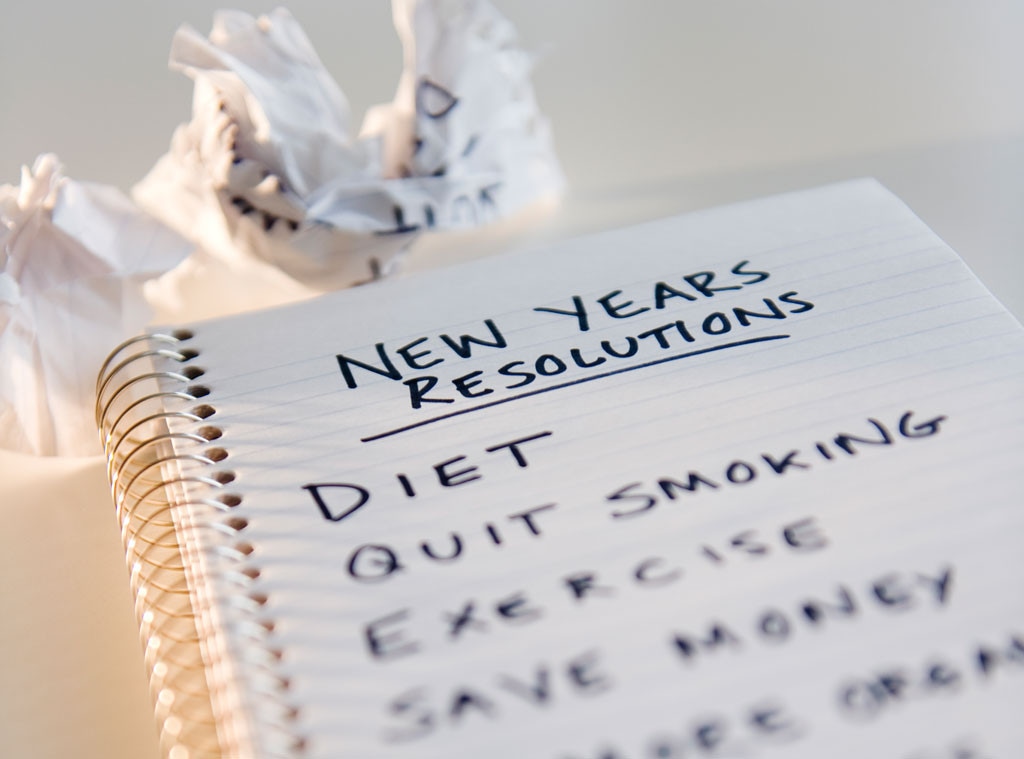 NEW YEARS
RESOLUTIONS
DIET
QUIT SMOKING
EXERCISE
SAVE MONEY
MORE